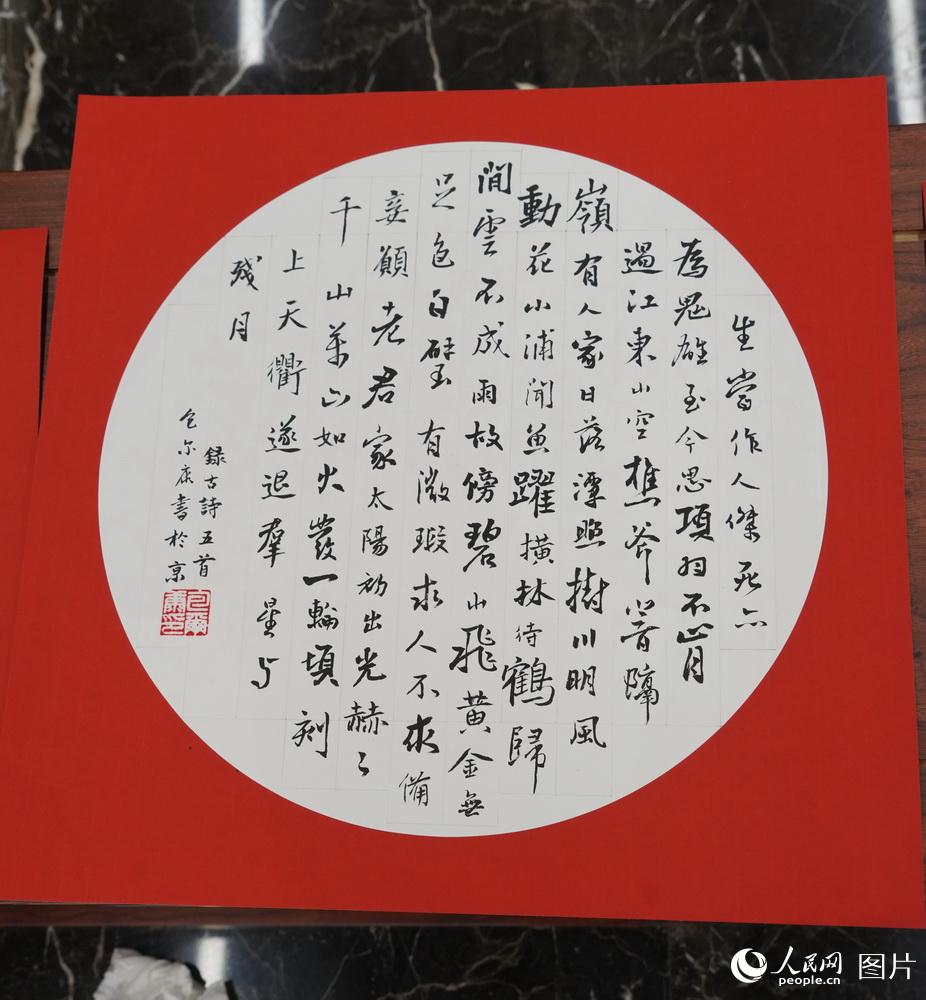 生當作人傑死亦
為鬼雄至今思項羽不肯
過江東山空樵斧響隔
嶺有人家日落潭照樹川明風
動花小浦聞魚躍橫林待鶴歸
間雲不成雨故傍碧山飛黃金無
足色白璧有微瑕求人不求備
妾願老君家太陽初出光赫〻
千山萬山如火發一輪頃刻
上天衢逐退羣星与
残月
録古詩五首
包尔康書於京
人民网 图片
people.cn